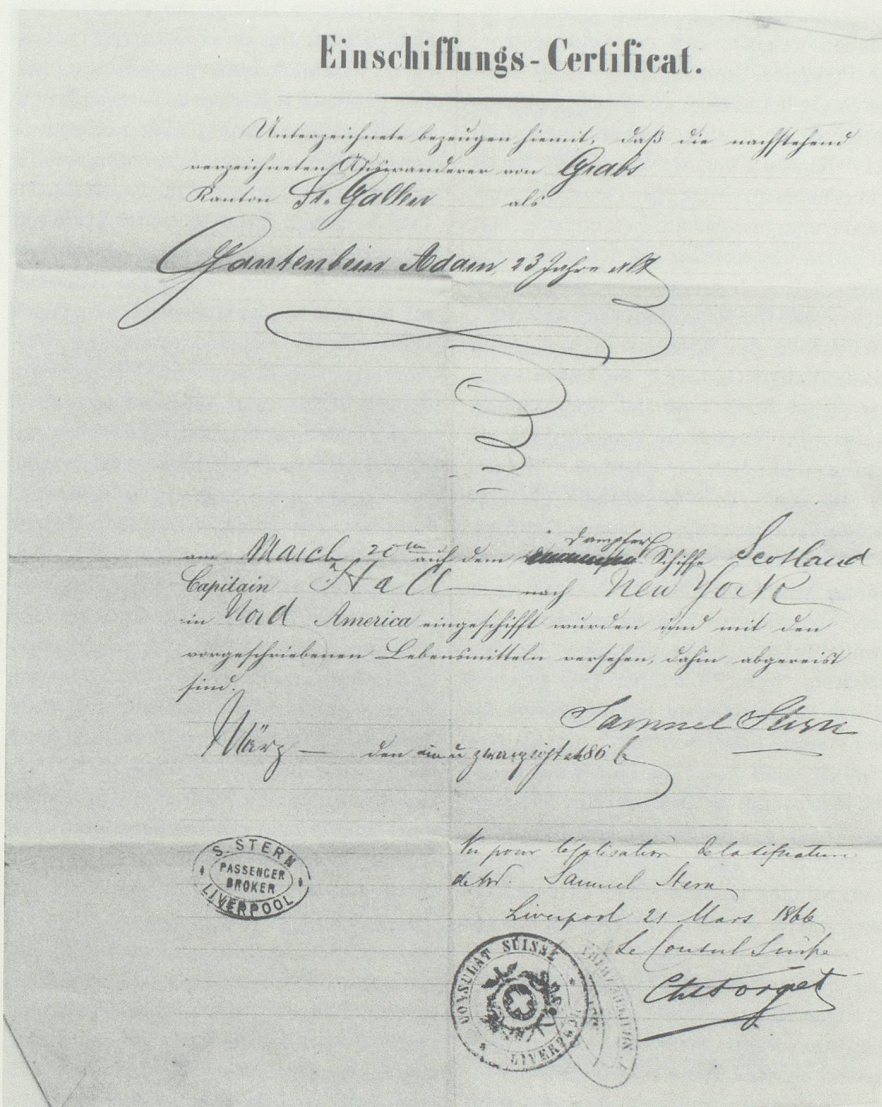 Einschiffungs-Certificat.
Unterzeichnete bezeugen hiemit, daß die nachstehend
verzeichneten Auswanderer von Grabs
Kanton St. Gallen als
Gantenbein Adam, 23 Jahre alt
am March 20th auf dem Dampfer Schiffe Scotland
Capitain Hall nach New York
in Nord America eingeschifft wurden und mit den
vorgeschriebenen Lebensmitteln versehen, dahin abgereist
sind.
Samuel Stern
März — den ein u zwanzigsten 1866
S. STERN
PASSENGER
BROKER
LIVERPOOL
Vu pour légalisation de la signature
de Mr. Samuel Stern
Liverpool 21 Mars 1866
Le Consul Suisse
CONSULAT SUISSE
LIVERPOOL